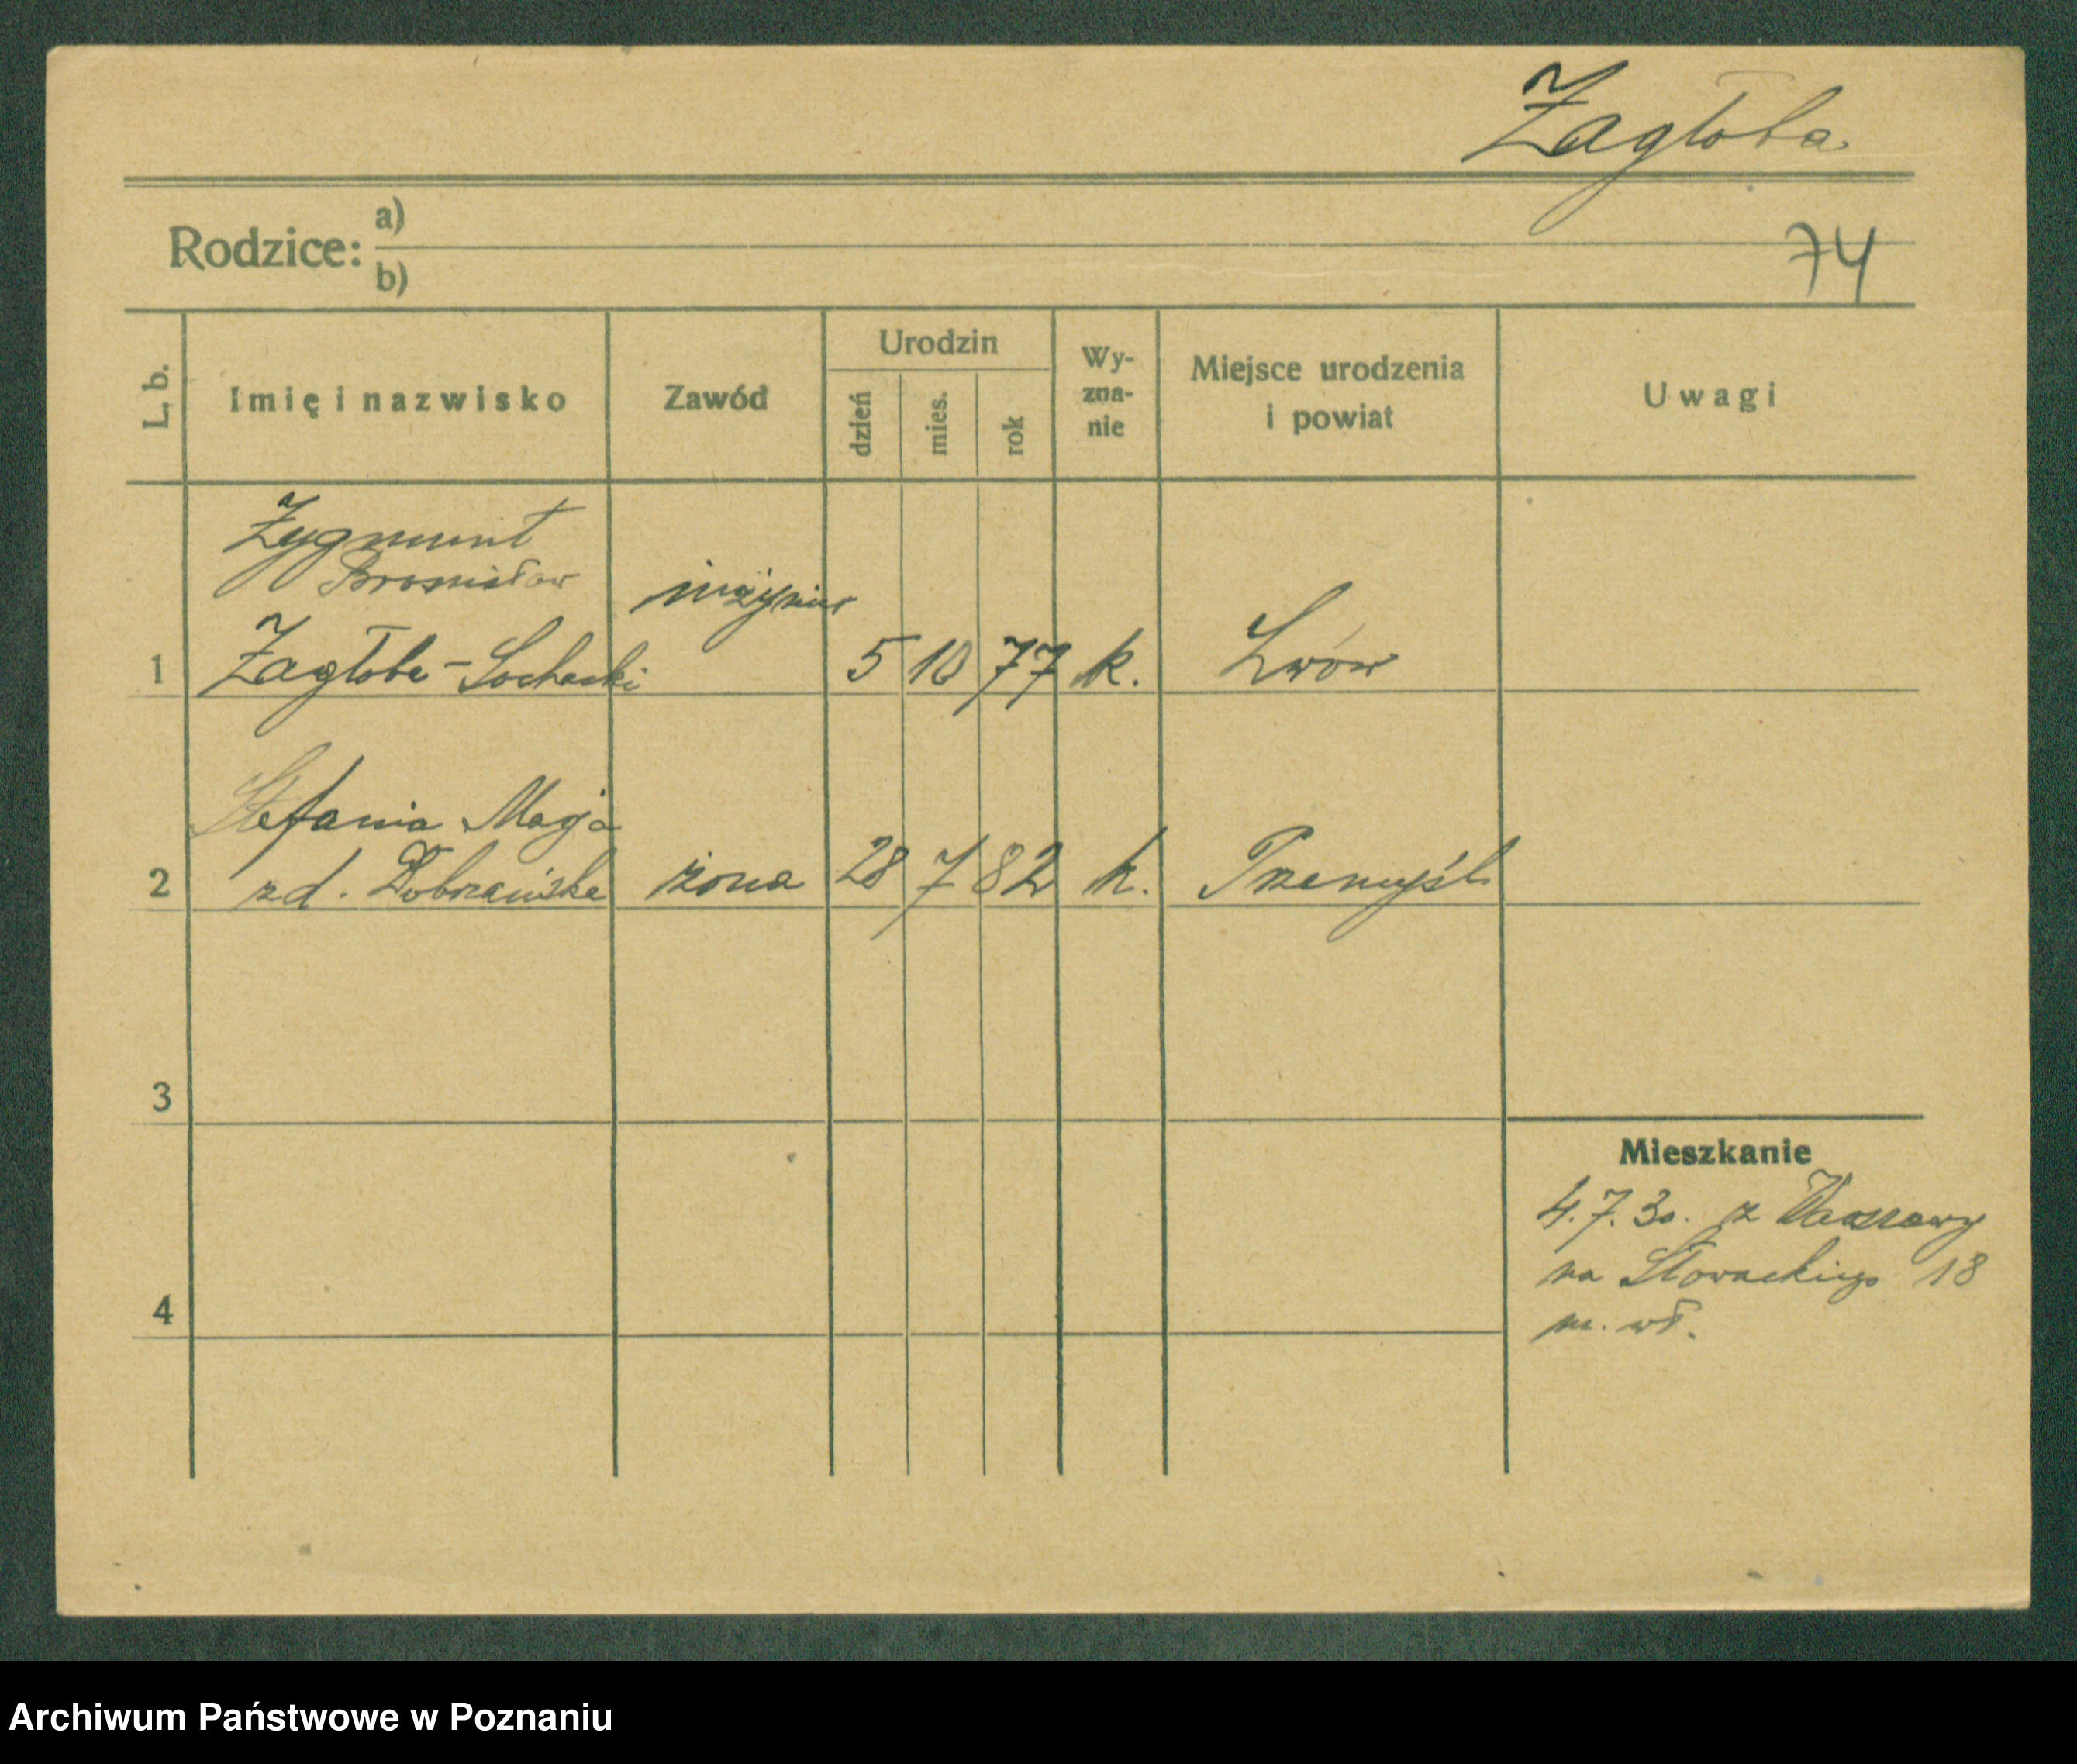 Zagłoba
Rodzice: a)
b)
74
L. b.
Imię i nazwisko
Zawód
Urodzin
dzień
mies.
rok
Wy-
zna-
nie
Miejsce urodzenia
i powiat
Uwagi
Zygmunt
Bronisław
inżynier
1 Zagłoba-Sochacki 5 10 77 k. Lwów
Stefania Marja
2 zd. Dobrzańska żona 28 7 82 k. Przemyśl
3
4
Mieszkanie
4.7.30. z Warszawy
na Słowackiego 18
m. wł.
Archiwum Państwowe w Poznaniu